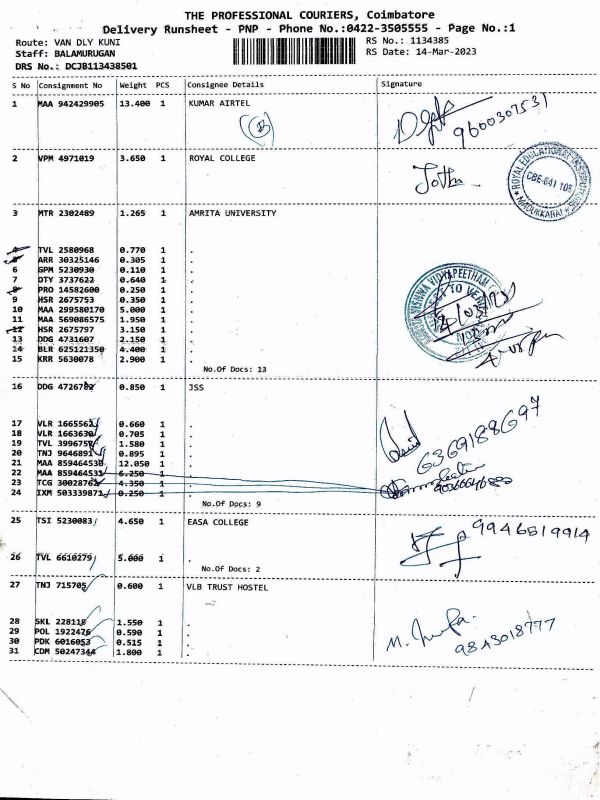 THE PROFESSIONAL COURIERS, Coimbatore
Delivery Runsheet - PNP - Phone No.:0422-3505555 - Page No.:1
Route: VAN DLY KUNI
RS No.: 1134385
Staff: BALAMURUGAN
RS Date: 14-Mar-2023
DRS No.: DCJB113438501
S No Consignment No Weight PCS Consignee Details Signature
1 MAA 942429905 13.400 1 KUMAR AIRTEL
9600307531
2 VPM 4971019 3.650 1 ROYAL COLLEGE
ROYAL EDUCATIONAL INSTITUTIONS
CBE-641 105
MADUKKARAI
3 MTR 2302489 1.265 1 AMRITA UNIVERSITY
4 TVL 2580968 0.770 1 .
5 ARR 30325146 0.305 1 .
6 GPM 5230930 0.110 1 .
7 OTY 3737622 0.640 1 .
8 PRO 14582600 0.250 1 .
9 HSR 2675753 0.350 1 .
10 MAA 299580170 5.000 1 .
11 MAA 569086575 1.950 1 .
12 HSR 2675797 3.150 1 .
13 DDG 4731607 2.150 1 .
14 BLR 625121350 4.400 1 .
15 KRR 5630078 2.900 1 .
No.Of Docs: 13
16 DDG 4726782 0.850 1 JSS
17 VLR 1665562 0.660 1 .
18 VLR 1663630 0.705 1 .
19 TVL 3996758 1.580 1 .
20 TNJ 9646891 0.895 1 .
21 MAA 859464530 12.050 1 .
22 MAA 859464531 6.250 1 .
23 TCG 30028762 4.350 1 .
24 IXM 503339871 0.250 1 .
No.Of Docs: 9
6369188697
25 TSI 5230083 4.650 1 EASA COLLEGE
9946519914
26 TVL 6610279 5.000 1 .
No.Of Docs: 2
27 TNJ 715705 0.600 1 VLB TRUST HOSTEL
28 SKL 228118 1.550 1 .
29 POL 1922476 0.590 1 .
30 PDK 6016053 0.515 1 .
31 CDM 50247344 1.800 1 .
9843018777